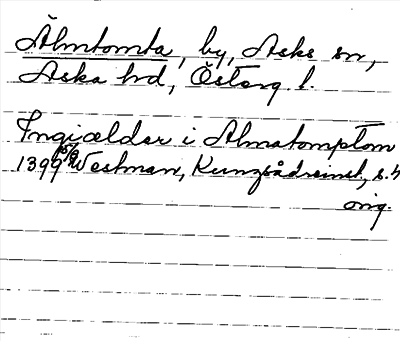 Älmtomta, by, Asks sn,
Aska hd, Österg. l.
Ingiælder i Almatomptom
1399 15/9 Westman, Kungsådreinst., s. 4
orig.